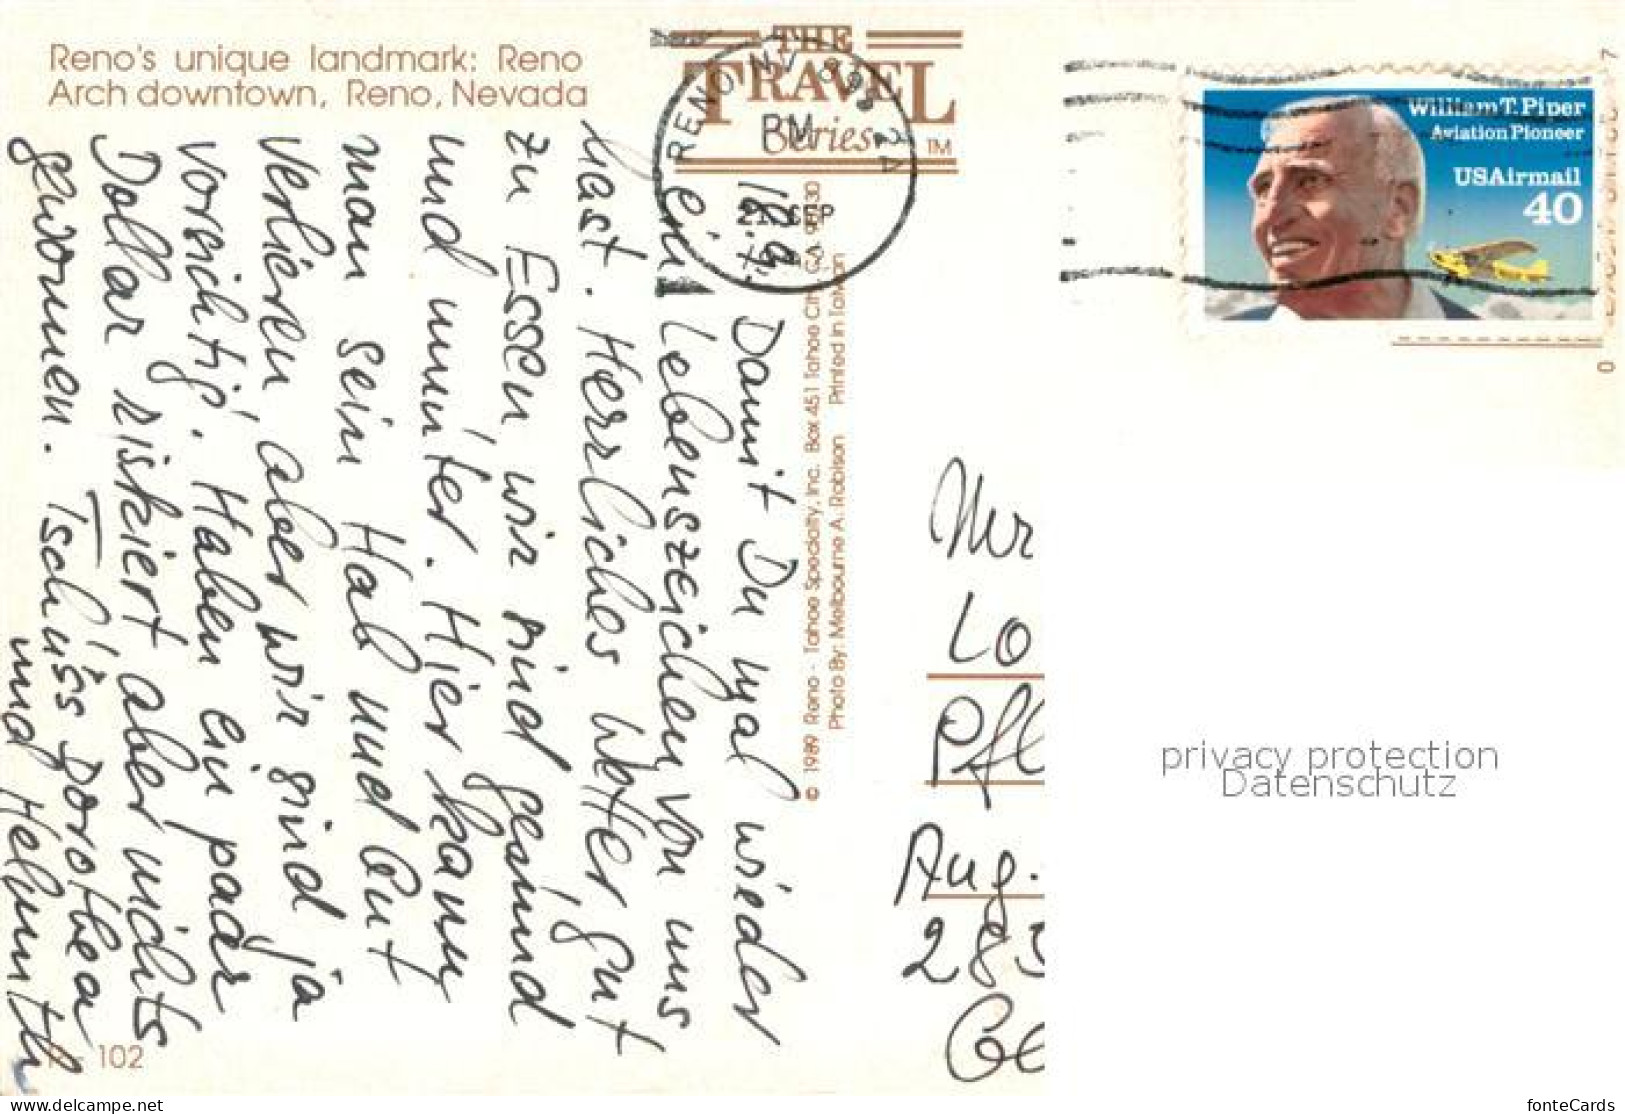 Reno's unique landmark: Reno
Arch downtown, Reno, Nevada
THE
TRAVEL
Series
TM
RENO NV
PM
21 SEP
18.9.
Damit Du mal wieder
ein Lebenszeichen von uns
hast. Herrliches Wetter, gut
zu Essen, wir sind gesund
und munter. Hier kann
man sein Hab und Gut
verlieren, aber wir sind ja
vorsichtig. Haben ein paar
Dollar riskiert aber nichts
gewonnen. Tschüss Dorothea
und Helmuth
© 1989 Reno - Tahoe Specialty, Inc. Box 451 Tahoe City, CA
Photo By: Melbourne A. Robison Printed in Taiwan
William T. Piper
Aviation Pioneer
USAirmail
40
Mr
Lo
Pfl
Aug.
283
Ge
102
privacy protection
Datenschutz
www.delcampe.net
fonteCards